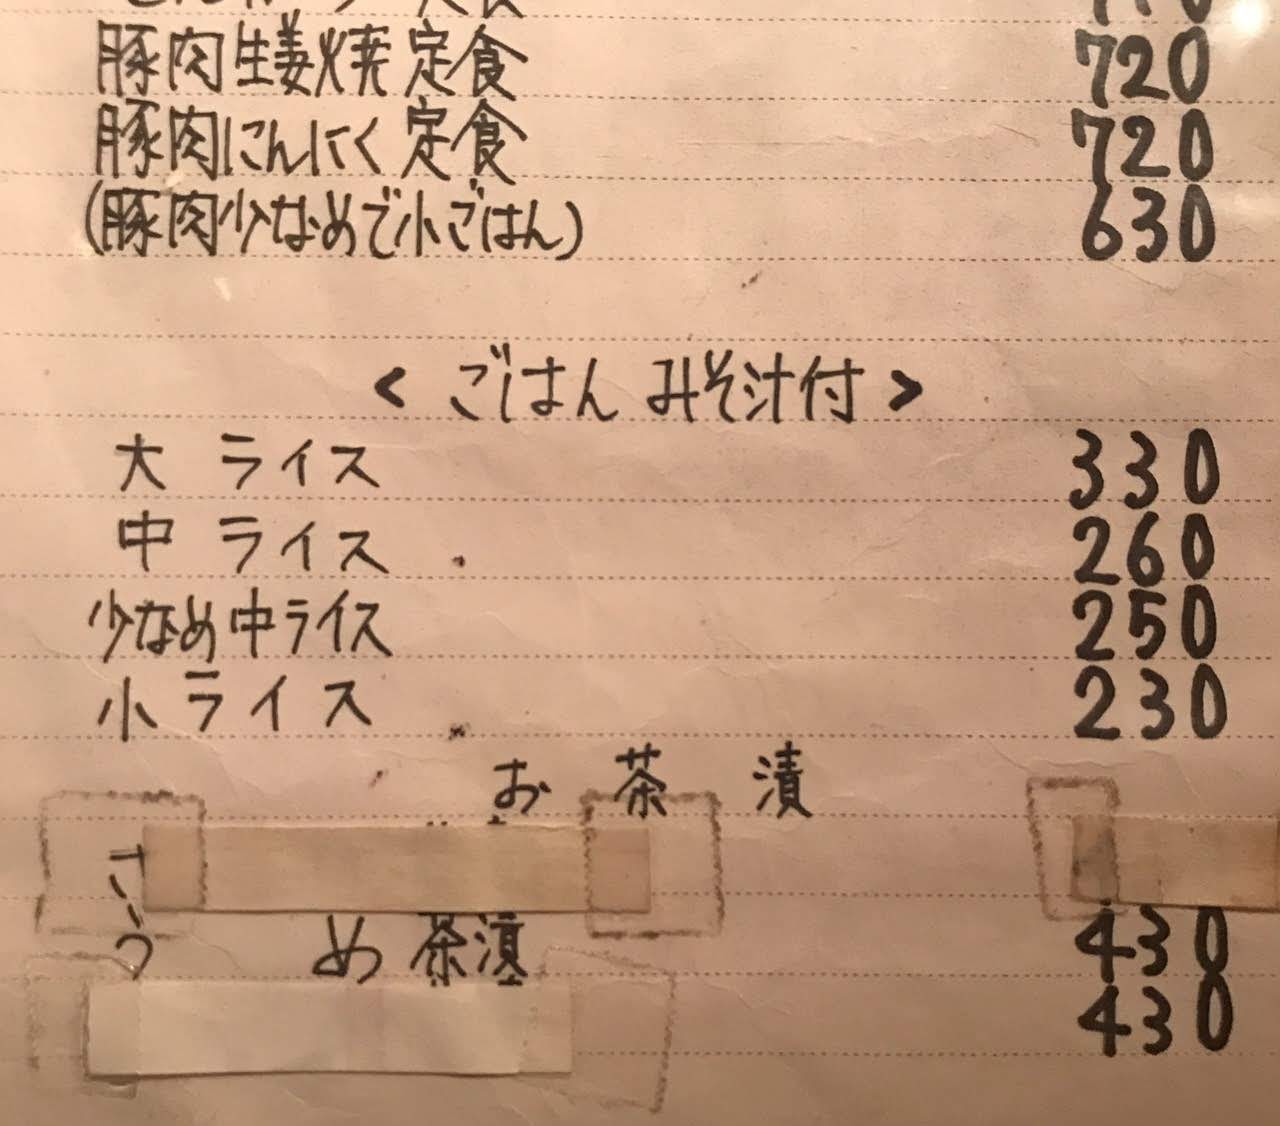 定食
豚肉生姜焼定食 720
豚肉にんにく定食 720
(豚肉少なめで小ごはん) 630
< ごはん みそ汁付 >
大 ライス 330
中 ライス 260
少なめ中ライス 250
小 ライス 230
お 茶 漬
う め 茶漬 430
430